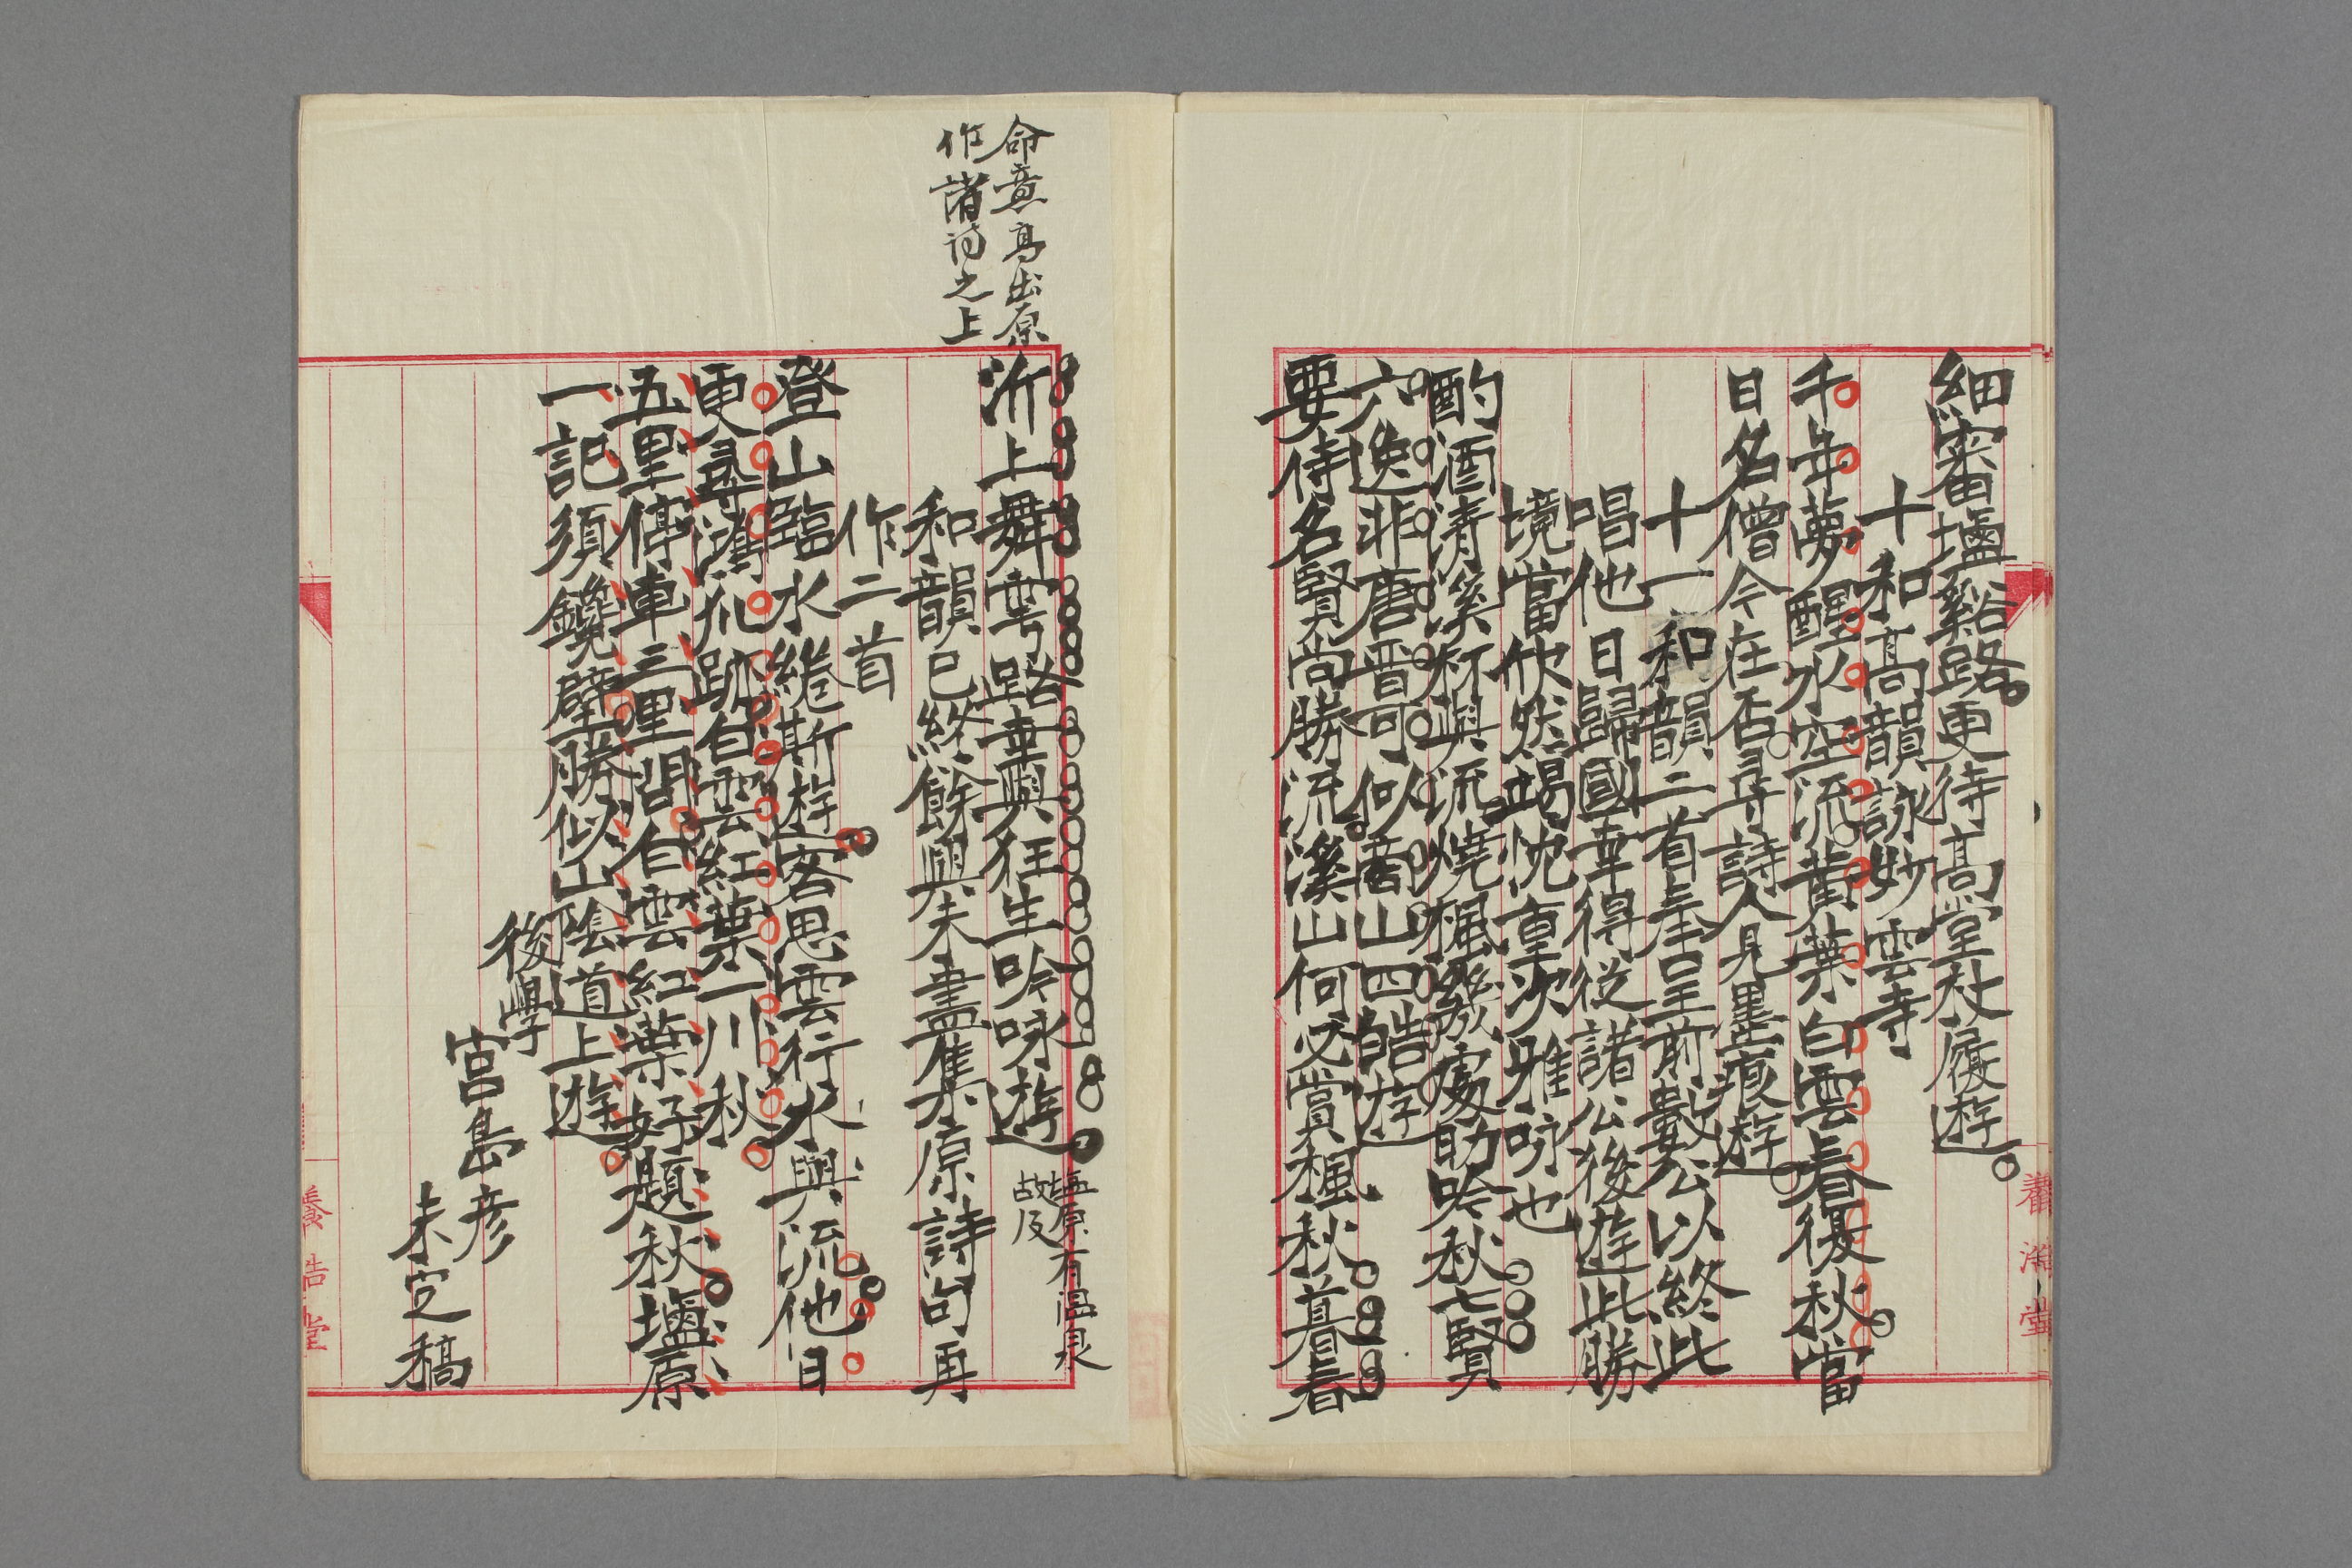 細審塩谿路更待高堂杖履遊
十和高韻詠妙雲寺
千年夢醒水空流黄葉白雲春復秋當
日名僧今在否尋詩人見墨痕遊
十一和韻二首奉呈前數公以終此
唱他日歸國幸得從諸公後遊此勝
境當欣然竭忱重次雅咏也
酌酒清溪杯與流燒楓幾處助吟秋七賢
六逸非唐晋可似商山四皓遊
要待名賢尚勝流溪山何必賞楓秋暮春
養浩堂
命意高出原
作諸詩之上
沂上舞雩路幸與狂生吟咏遊
塩原有温泉
故及
和韻已終餘興未盡集原詩句再
作二首
登山臨水綣斯遊客思雲行水與流他日
更尋鴻爪跡白雲紅葉一川秋
五里停車三里問白雲紅葉好題秋塩原
一記須鐫壁勝似山陰道上遊
後學
宮島彦
未定稿
養浩堂